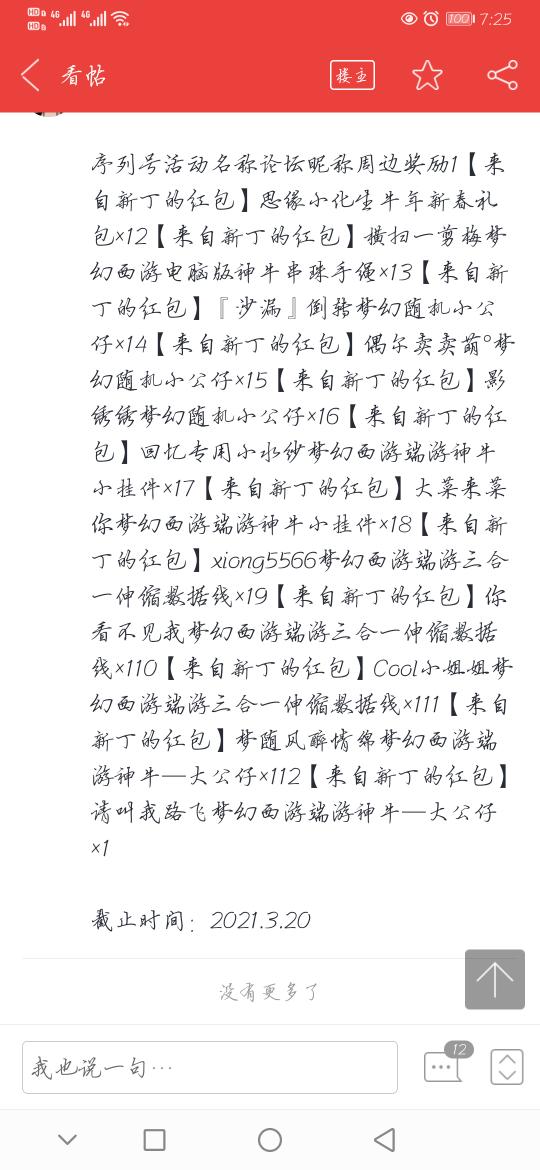 HD 4G HD 4G 100 7:25
看帖 楼主
序列号活动名称论坛昵称周边奖励1【来
自新丁的红包】思缘小化生牛年新春礼
包×12【来自新丁的红包】横扫一剪梅梦
幻西游电脑版神牛串珠手绳×13【来自新
丁的红包】『沙漏』倒转梦幻随机小公
仔×14【来自新丁的红包】偶尔卖卖萌°梦
幻随机小公仔×15【来自新丁的红包】影
绣绣梦幻随机小公仔×16【来自新丁的红
包】回忆专用小水纱梦幻西游端游神牛
小挂件×17【来自新丁的红包】大菜来菜
你梦幻西游端游神牛小挂件×18【来自新
丁的红包】xiong5566梦幻西游端游三合
一伸缩数据线×19【来自新丁的红包】你
看不见我梦幻西游端游三合一伸缩数据
线×110【来自新丁的红包】Cool小姐姐梦
幻西游端游三合一伸缩数据线×111【来自
新丁的红包】梦随风醉情绵梦幻西游端
游神牛—大公仔×112【来自新丁的红包】
请叫我路飞梦幻西游端游神牛—大公仔
×1
截止时间：2021.3.20
没有更多了
我也说一句… 12